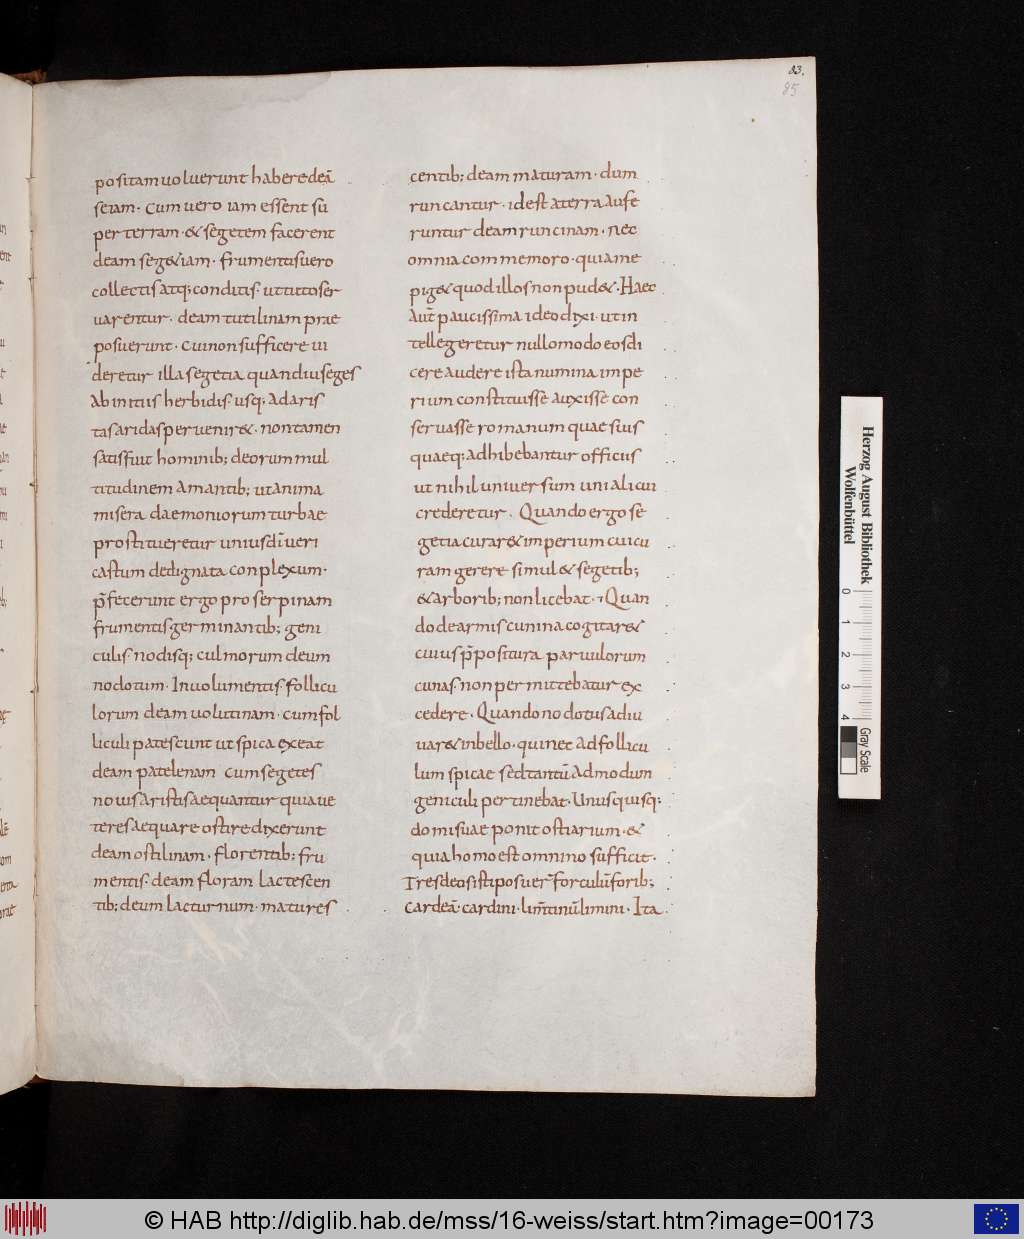 83.
85
positam uoluerunt habere deā
seiam· cum uero iam essent sū
per terram· & segetem facerent
deam seg&iam· frumentis uero
collectis atq; conditis· ut tuto ser
uarentur· deam tutilinam prae
posuerunt· cui non sufficere ui
deretur illa segetia quandiu seges
ab initiis herbidis usq; ad aris
tas aridas peruenir&· non tamen
satis fuit hominib; deorum mul
titudinem amantib; ut anima
misera daemoniorum turbae
prostitueretur unius dī ueri
castum dedignata conplexum·
p̄fecerunt ergo proserpinam
frumentis germinantib; geni
culis nodisq; culmorum deum
nodotum· Inuolumentis follicu
lorum deam uolutinam· cum fol
liculi patescunt ut spica exeat
deam patelenam cum segetes
nouis aristis aequantur quia ue
teres aequare ostire dixerunt
deam ostilinam· florentib; fru
mentis· deam floram lactescen
tib; deum lacturnum· matures
centib; deam maturam· dum
runcantur· id est a terra aufe
runtur deam runcinam· nec
omnia commemoro· quia me
pig& quod illos non pud&· Haec
aut̄ paucissima ideo dixi· ut in
tellegeretur nullo modo eos di
cere audere ista numina impe
rium constituisse auxisse con
seruasse romanum quae suis
quaeq; adhibebantur officiis
ut nihil uniuersum uni alicui
crederetur· Quando ergo se
getia curar& imperium cui cu
ram gerere simul & segetib;
& arborib; non licebat· Quan
do de armis cunina cogitar&
cuius p̄positura paruulorum
cunas· non permittebatur ex
cedere· Quando nodotus adiu
uar& in bello· qui nec ad follicu
lum spicae sed tantū ad nodum
geniculi pertinebat· Unusquisq;
domi suae ponit ostiarium· &
quia homo est omnino sufficit·
Tres deos isti posuer̄ forculū forib;
cardeā· cardini· limtinū limini· Ita
Herzog August Bibliothek
Wolfenbüttel
0 1 2 3 4
Gray Scale
© HAB http://diglib.hab.de/mss/16-weiss/start.htm?image=00173